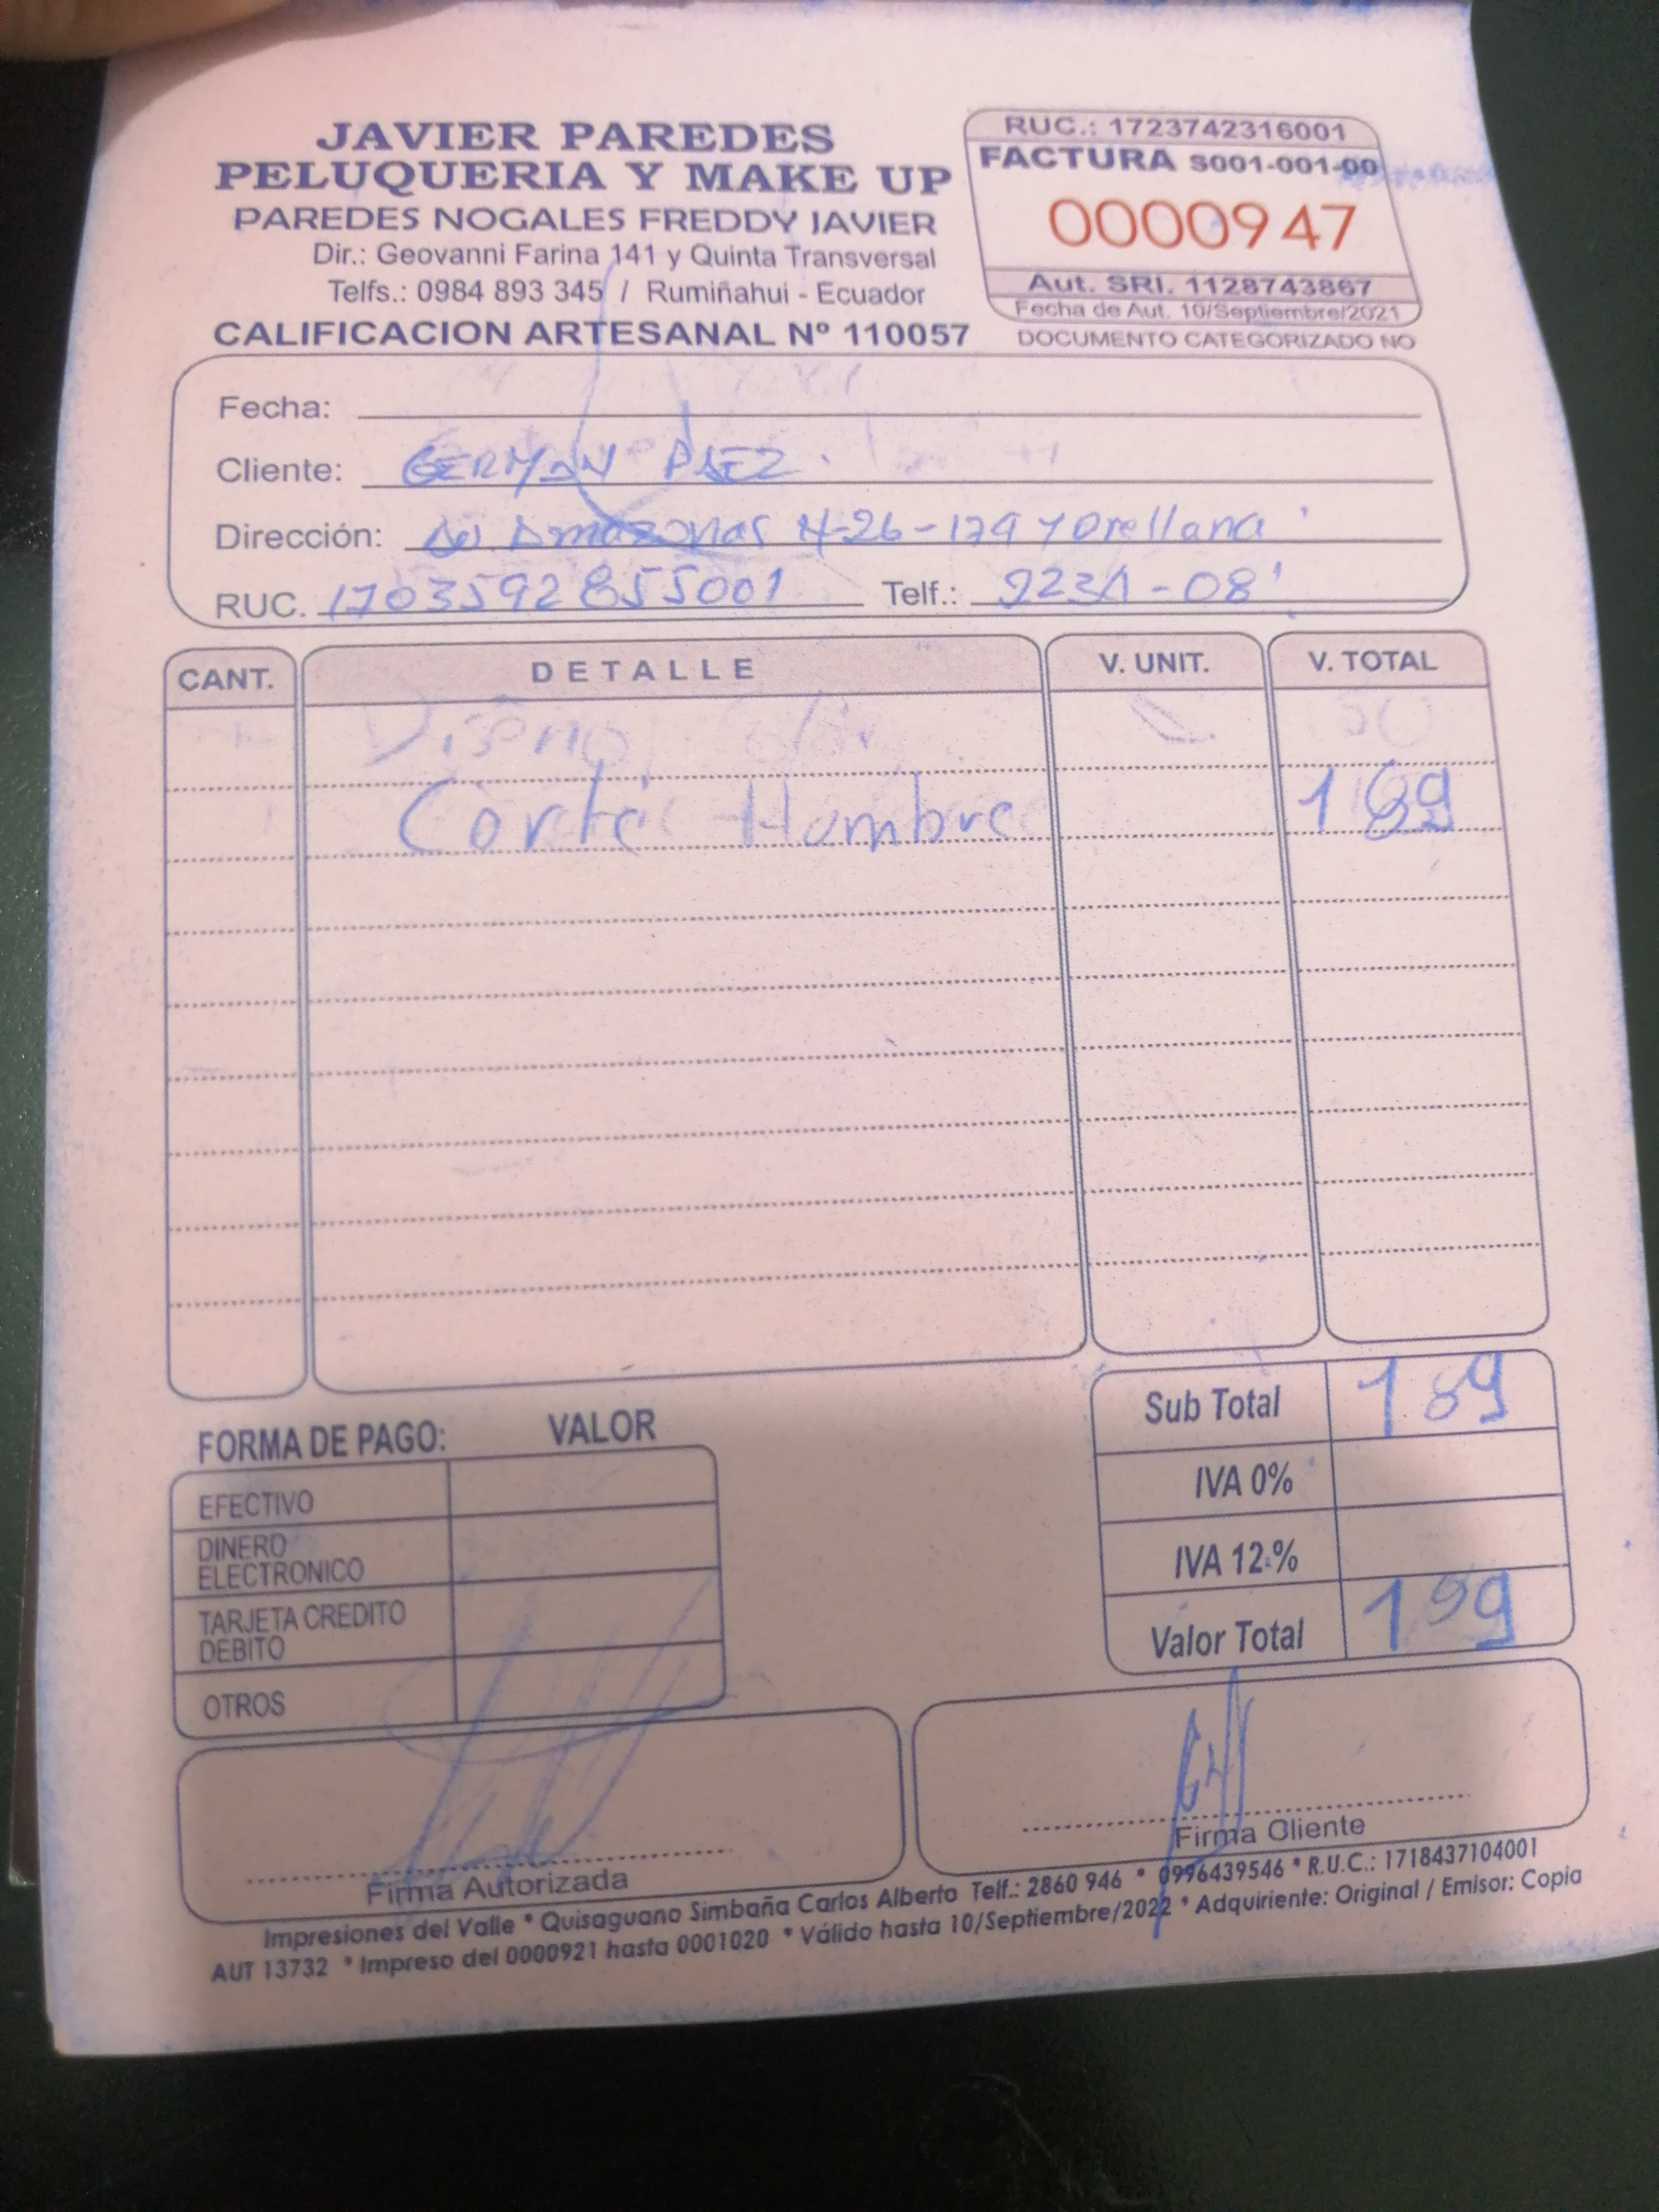 JAVIER PAREDES
PELUQUERIA Y MAKE UP
PAREDES NOGALES FREDDY JAVIER
Dir.: Geovanni Farina 141 y Quinta Transversal
Telfs.: 0984 893 345 / Rumiñahui - Ecuador
CALIFICACION ARTESANAL Nº 110057
RUC.: 1723742316001
FACTURA S001-001-00
0000947
Aut. SRI. 1128743867
Fecha de Aut. 10/Septiembre/2021
DOCUMENTO CATEGORIZADO NO
Fecha:
Cliente: GERMAN PAEZ
Dirección: Av Amazonas N-26-179 y Orellana
RUC. 1703592855001 Telf.: 2231-08
CANT. DETALLE V. UNIT. V. TOTAL
Corte Hombre
FORMA DE PAGO: VALOR
EFECTIVO
DINERO ELECTRONICO
TARJETA CREDITO
DEBITO
OTROS
Sub Total
IVA 0%
IVA 12.%
Valor Total 199
Firma Autorizada
Firma Cliente
Impresiones del Valle * Quisaguano Simbaña Carlos Alberto Telf.: 2860 946 * 0996439546 * R.U.C.: 1718437104001
AUT 13732 * Impreso del 0000921 hasta 0001020 * Válido hasta 10/Septiembre/2022 * Adquiriente: Original / Emisor: Copia